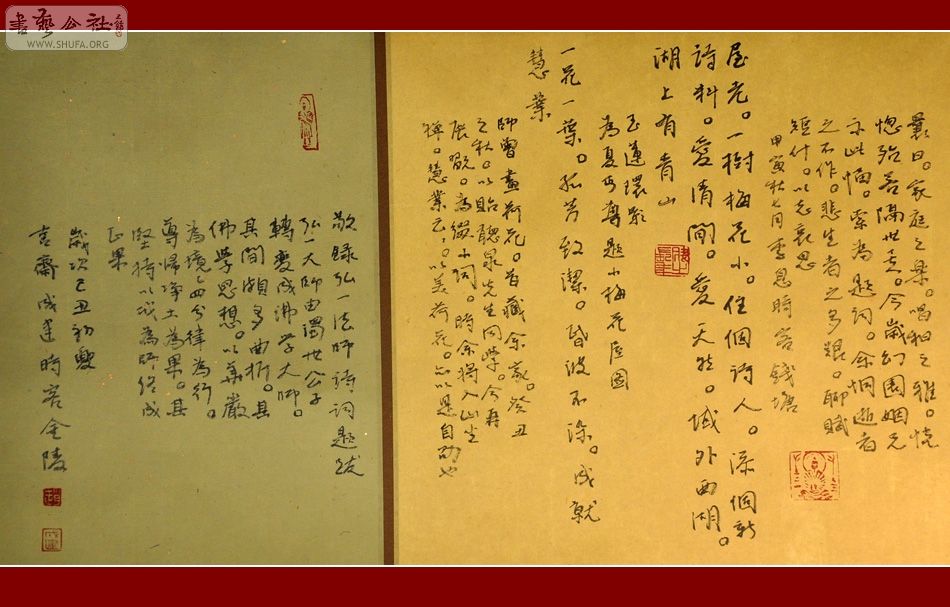 書藝公社
WWW.SHUFA.ORG
曩日。家庭之樂。唱和之雅。恍
惚殆若隔世矣。今歲幻園姻兄
示此幅。索為題詞。余恫逝者
之不作。悲生者之多艱。聊賦
短什。以志哀思
甲寅秋七月李息時客錢塘
屋老。一樹梅花小。住個詩人。添個新
詩料。愛清閒。愛天然。城外西湖。
湖上有青山
玉連環影
為夏丏尊題小梅花屋圖
一花一葉。孤芳致潔。昏波不染。成就
慧業
師曾畫荷花。昔藏余家。癸丑
之秋。以貽聽泉先生同學。今再
展翫。為綴小詞。時余將入山坐
禪。慧業云云。以美荷花。亦以是自劭也
敬錄弘一法師詩詞題跋
弘一大師由濁世公子
轉變成沸學大師。
其間頗多曲折。其
佛學思想。以華嚴
為境。四分律為行。
導歸淨土為果。其
堅持以戒為師終成
正果
歲次己丑初夏
齋成 時客金陵